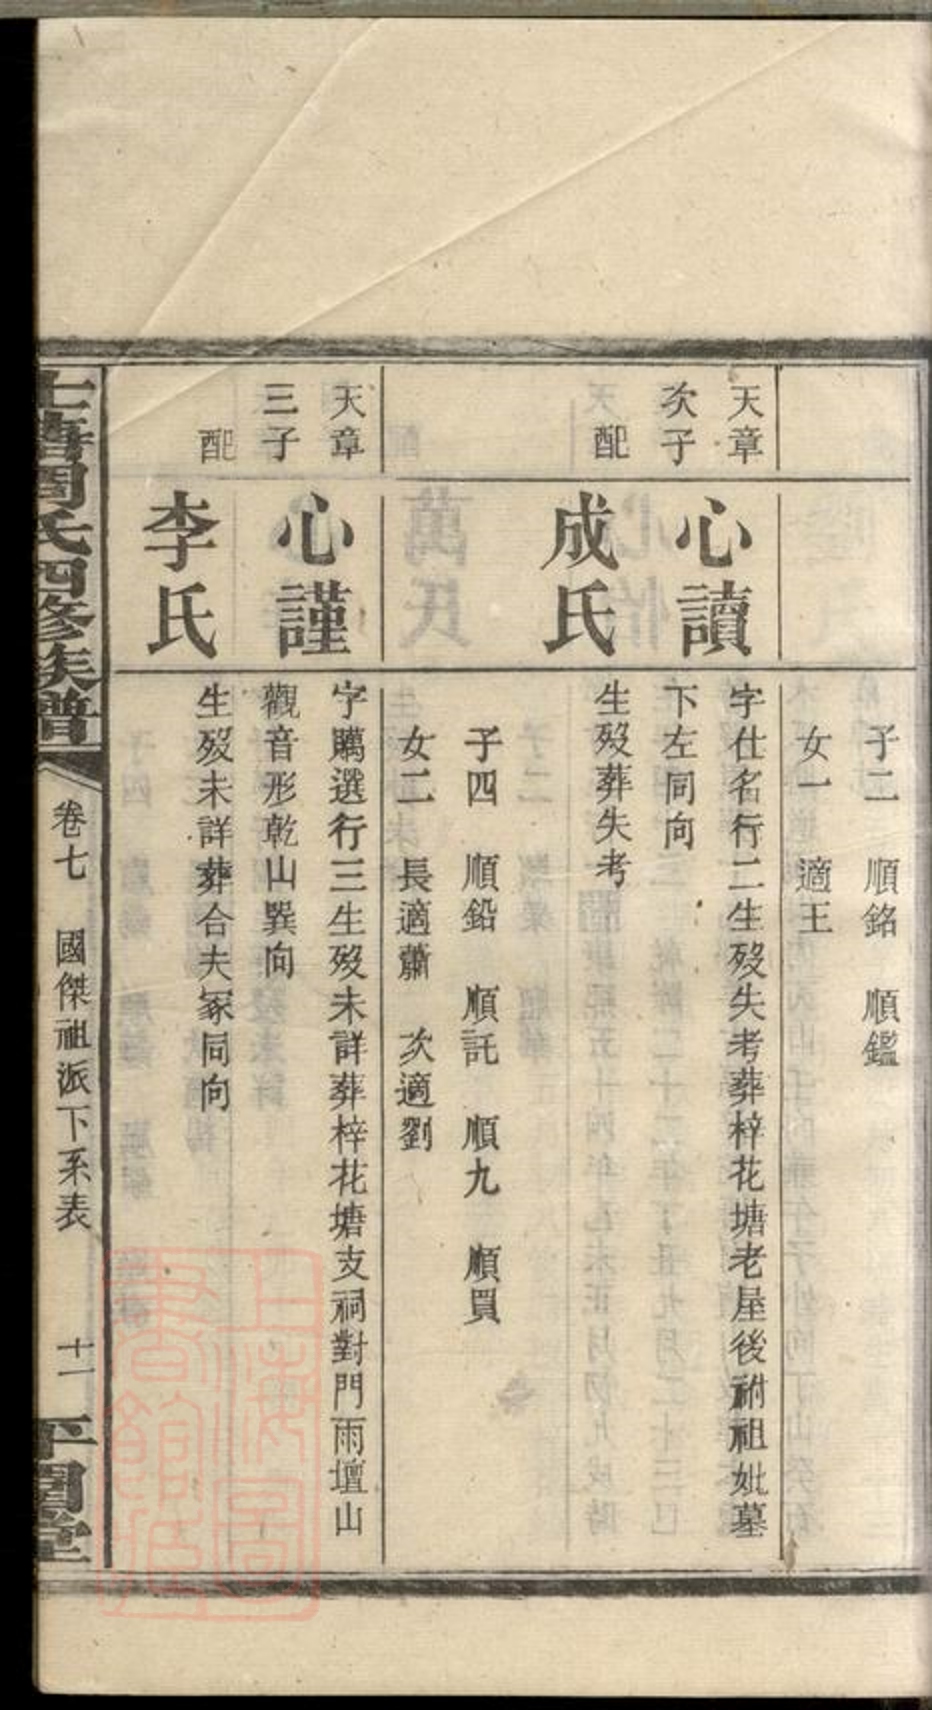 子二 順銘 順鑑
女一 適王
天章
次子
心讀
字仕名行二生歿失考葬梓花塘老屋後祔祖妣墓
下左同向
配
成氏
生歿葬失考
子四 順鉛 順託 順九 順買
女二 長適蕭 次適劉
天章
三子
心謹
字購選行三生歿未詳葬梓花塘支祠對門雨壇山
觀音形乾山巽向
配
李氏
生歿未詳葬合夫冢同向
周氏四修族譜
卷七 國傑祖派下系表 十一
上海圖書館藏